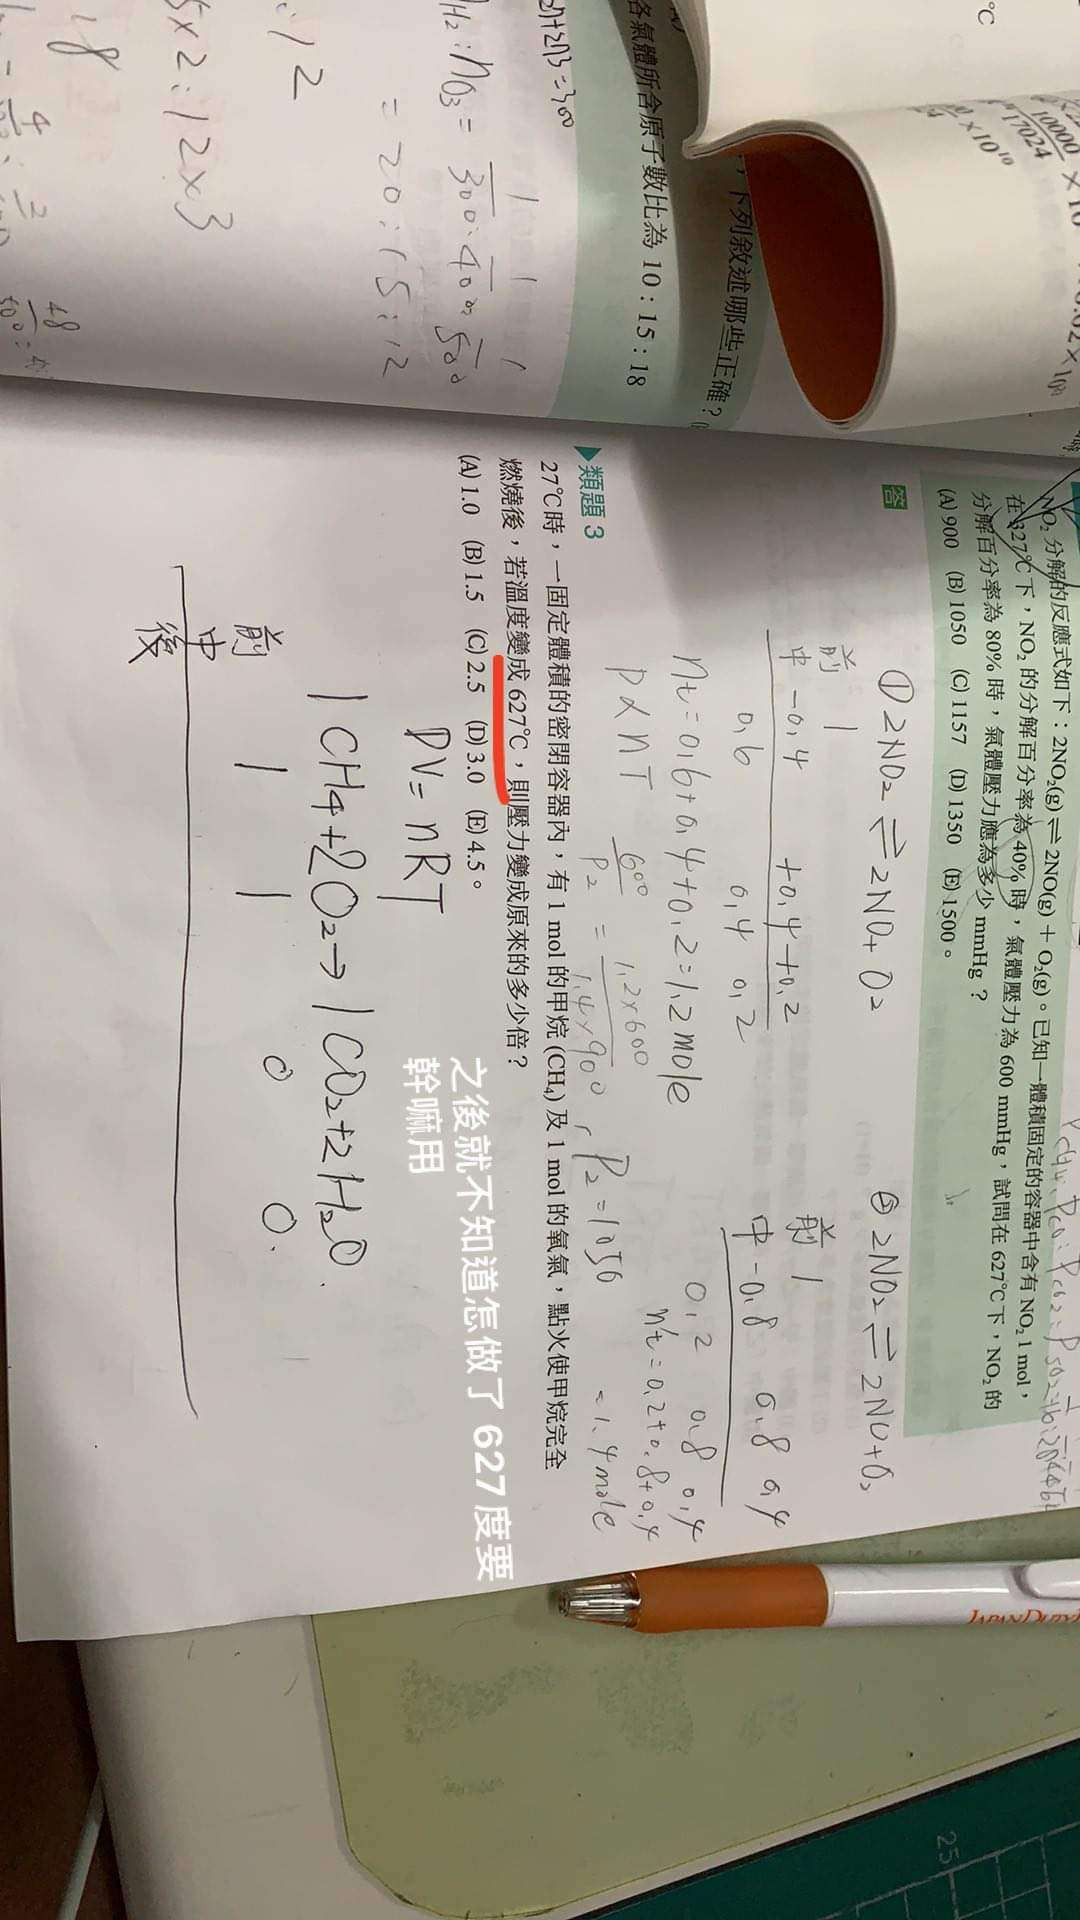 ℃
10000
17024
×10¹⁰
,下列敘述哪些正確?
各氣體所含原子數比為 10:15:18
= 20:15:12
5×2:12×3
NO₂ 分解的反應式如下:2NO₂(g) ⇌ 2NO(g) + O₂(g)。已知一體積固定的容器中含有 NO₂ 1 mol,
在 327℃下,NO₂ 的分解百分率為 40% 時,氣體壓力為 600 mmHg,試問在 627℃下,NO₂ 的
分解百分率為 80% 時,氣體壓力應為多少 mmHg?
(A) 900 (B) 1050 (C) 1157 (D) 1350 (E) 1500。
答
① 2NO₂ ⇌ 2NO + O₂
前 1
中 -0.4 +0.4 +0.2
0.6 0.4 0.2
nt = 0.6+0.4+0.2=1.2mole
P∝nT
600/P₂ = 1.2×600/1.4×900, P₂=1050
② 2NO₂ ⇌ 2NO+O₂
前 1
中 -0.8 0.8 0.4
0.2 0.8 0.4
n't = 0.2+0.8+0.4
=1.4mole
▶類題 3
27℃時,一固定體積的密閉容器內,有 1 mol 的甲烷 (CH₄) 及 1 mol 的氧氣,點火使甲烷完全
燃燒後,若溫度變成 627℃,則壓力變成原來的多少倍?
(A) 1.0 (B) 1.5 (C) 2.5 (D) 3.0 (E) 4.5。
PV=nRT
之後就不知道怎做了 627度要
幹嘛用
1CH4+2O₂→1CO₂+2H₂O
前 1 1 0 0
中
後
JAPAN
25